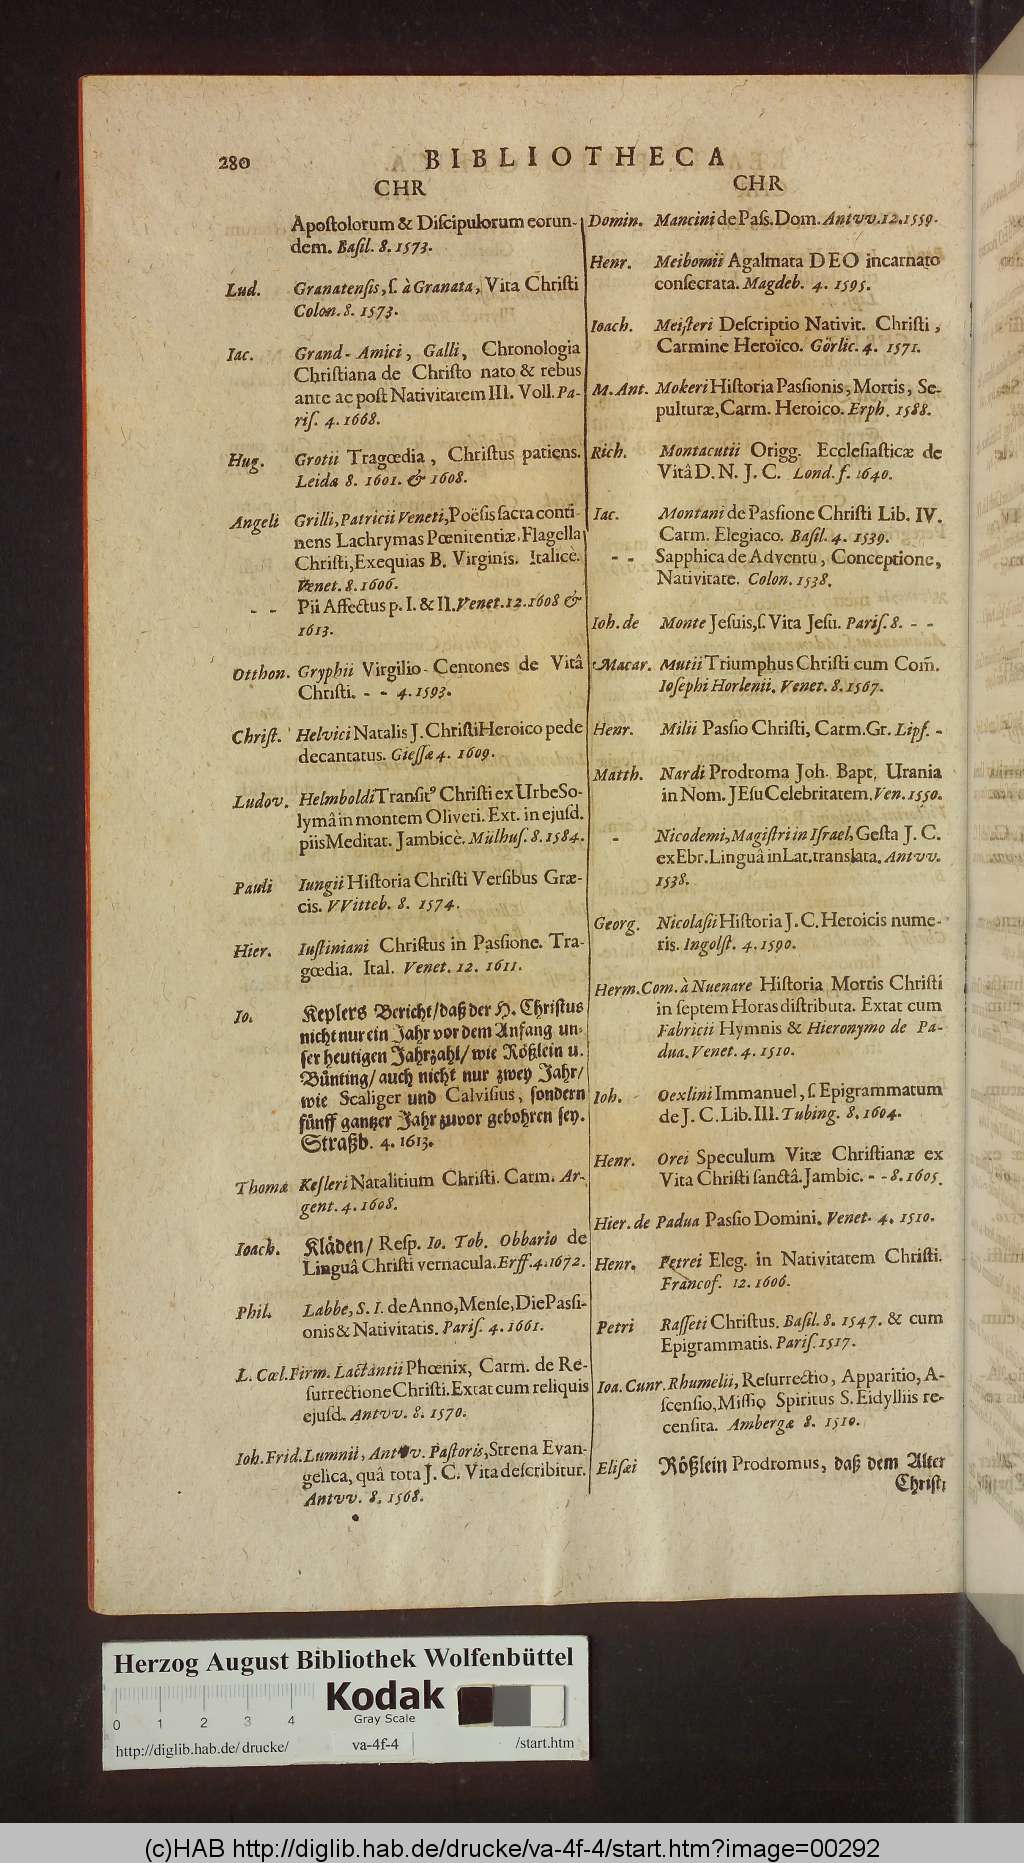 280 BIBLIOTHECA
CHR
Apoſtolorum & Diſcipulorum eorun-
dem. Baſil. 8. 1573.
Lud. Granatenſis, ſ. à Granata, Vita Chriſti
Colon. 8. 1573.
Iac. Grand-Amici, Galli, Chronologia
Chriſtiana de Chriſto nato & rebus
ante ac poſt Nativitatem III. Voll. Pa-
riſ. 4. 1668.
Hug. Grotii Tragœdia, Chriſtus patiens.
Leida 8. 1601. & 1608.
Angeli Grilli, Patricii Veneti, Poëſis ſacra conti-
nens Lachrymas Pœnitentiæ, Flagella
Chriſti, Exequias B. Virginis. Italicè.
Venet. 8. 1606.
- - Pii Affectus p. I. & II. Venet. 12. 1608 &
1613.
Otthon. Gryphii Virgilio-Centones de Vitâ
Chriſti. - - 4. 1593.
Chriſt. Helvici Natalis J. Chriſti Heroico pede
decantatus. Gieſſæ 4. 1609.
Ludov. Helmboldi Tranſitꝰ Chriſti ex Urbe So-
lymâ in montem Oliveti. Ext. in ejuſd.
piis Meditat. Jambicè. Mülhuſ. 8. 1584.
Pauli Iungii Hiſtoria Chriſti Verſibus Græ-
cis. VVitteb. 8. 1574.
Hier. Iuſtiniani Chriſtus in Paſſione. Tra-
gœdia. Ital. Venet. 12. 1611.
Io. Keplers Bericht/ daß der H. Chriſtus
nicht nur ein Jahr vor dem Anfang un-
ſer heutigen Jahrzahl/ wie Rößlein u.
Bünting/ auch nicht nur zwey Jahr/
wie Scaliger und Calviſius, ſondern
fünff gantzer Jahr zuvor gebohren ſey.
Straßb. 4. 1613.
Thomæ Keſleri Natalitium Chriſti. Carm. Ar-
gent. 4. 1608.
Ioach. Kläden/ Reſp. Io. Tob. Obbario de
Linguâ Chriſti vernacula. Erff. 4. 1672.
Phil. Labbe, S. I. de Anno, Menſe, Die Paſſi-
onis & Nativitatis. Pariſ. 4. 1661.
L. Cœl. Firm. Lactantii Phœnix, Carm. de Re-
ſurrectione Chriſti. Extat cum reliquis
ejuſd. Antvv. 8. 1570.
Ioh. Frid. Lumnii, Antvv. Paſtoris, Strena Evan-
gelica, quâ tota J. C. Vita deſcribitur.
Antvv. 8. 1568.
CHR
Domin. Mancini de Paſſ. Dom. Antvv. 12. 1559.
Henr. Meibomii Agalmata DEO incarnato
conſecrata. Magdeb. 4. 1595.
Ioach. Meiſteri Deſcriptio Nativit. Chriſti,
Carmine Heroïco. Görlic. 4. 1571.
M. Ant. Mokeri Hiſtoria Paſſionis, Mortis, Se-
pulturæ, Carm. Heroico. Erph. 1588.
Rich. Montacutii Origg. Eccleſiaſticæ de
Vitâ D. N. J. C. Lond. f. 1640.
Iac. Montani de Paſſione Chriſti Lib. IV.
Carm. Elegiaco. Baſil. 4. 1539.
- - Sapphica de Adventu, Conceptione,
Nativitate. Colon. 1538.
Ioh. de Monte Jeſuis, ſ. Vita Jeſu. Pariſ. 8. - -
Macar. Mutii Triumphus Chriſti cum Com̃.
Ioſephi Horlenii. Venet. 8. 1567.
Henr. Milii Paſſio Chriſti, Carm. Gr. Lipſ. -
Matth. Nardi Prodroma Joh. Bapt. Urania
in Nom. JEſu Celebritatem. Ven. 1550.
- Nicodemi, Magiſtri in Iſrael, Geſta J. C.
ex Ebr. Linguâ in Lat. translata. Antvv.
1538.
Georg. Nicolaſii Hiſtoria J. C. Heroicis nume-
ris. Ingolſt. 4. 1590.
Herm. Com. à Nuenare Hiſtoria Mortis Chriſti
in ſeptem Horas diſtributa. Extat cum
Fabricii Hymnis & Hieronymo de Pa-
dua. Venet. 4. 1510.
Ioh. Oexlini Immanuel, ſ. Epigrammatum
de J. C. Lib. III. Tubing. 8. 1604.
Henr. Orei Speculum Vitæ Chriſtianæ ex
Vita Chriſti ſanctâ. Jambic. - - 8. 1605.
Hier. de Padua Paſſio Domini. Venet. 4. 1510.
Henr. Petrei Eleg. in Nativitatem Chriſti.
Francof. 12. 1606.
Petri Raſſeti Chriſtus. Baſil. 8. 1547. & cum
Epigrammatis. Pariſ. 1517.
Ioa. Cunr. Rhumelii, Reſurrectio, Apparitio, A-
ſcenſio, Miſſio Spiritus S. Eidylliis re-
cenſita. Ambergæ 8. 1510.
Eliſæi Rößlein Prodromus, daß dem Alter
Chriſti
Herzog August Bibliothek Wolfenbüttel
Kodak
Gray Scale
0 1 2 3 4
http://diglib.hab.de/drucke/ va-4f-4 /start.htm
(c)HAB http://diglib.hab.de/drucke/va-4f-4/start.htm?image=00292